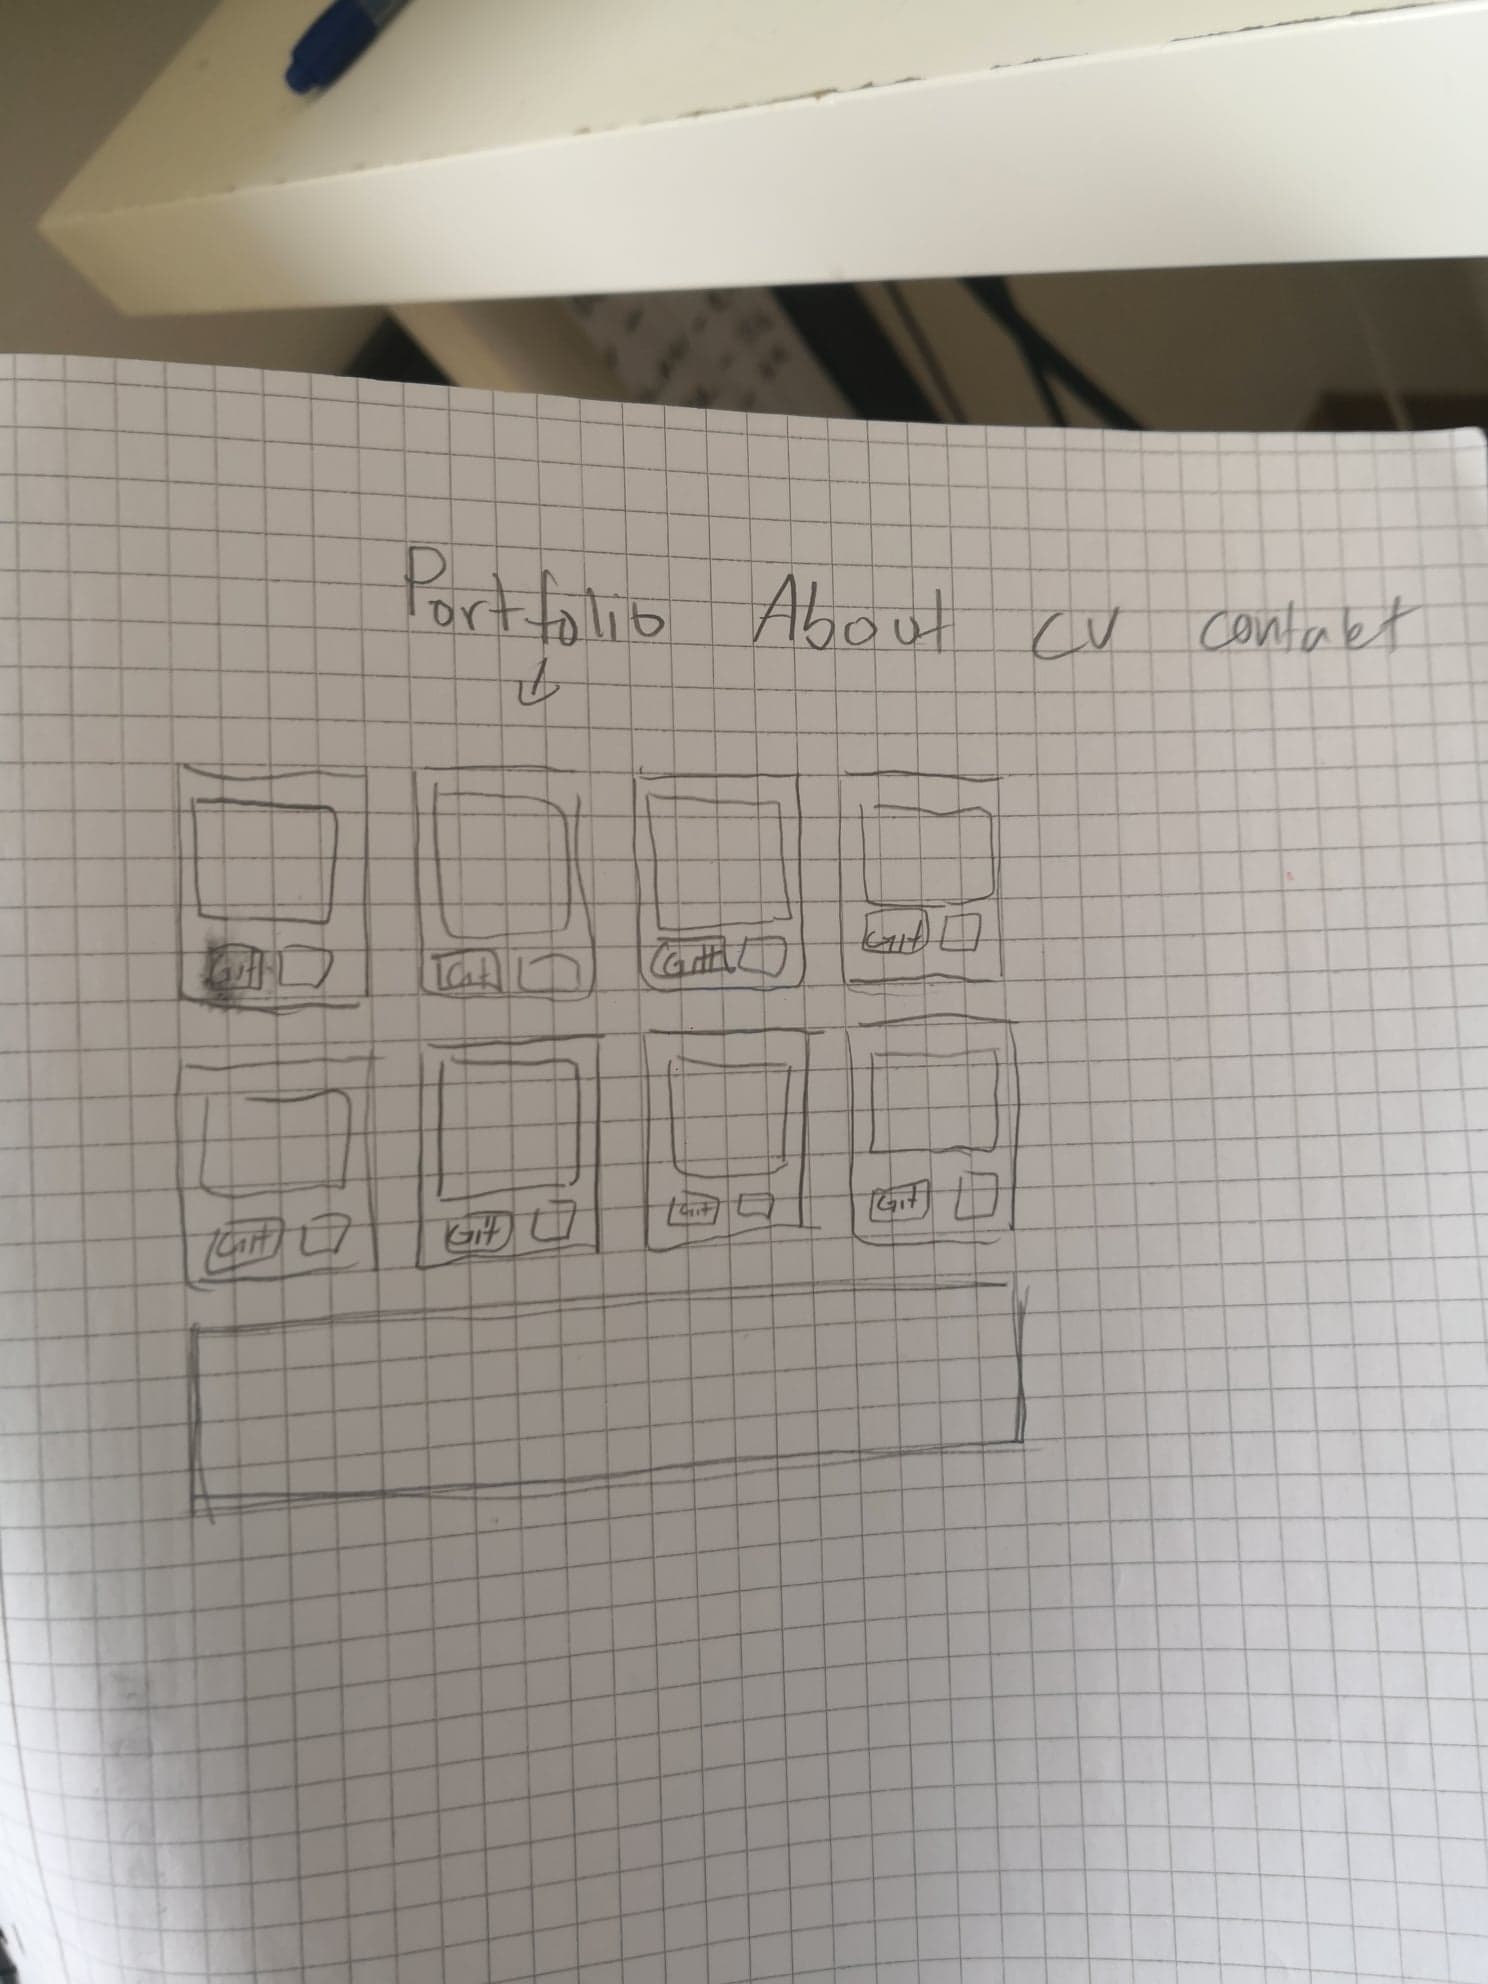 Portfolio About CV contakt
Git Git Git Git
Git Git Git Git